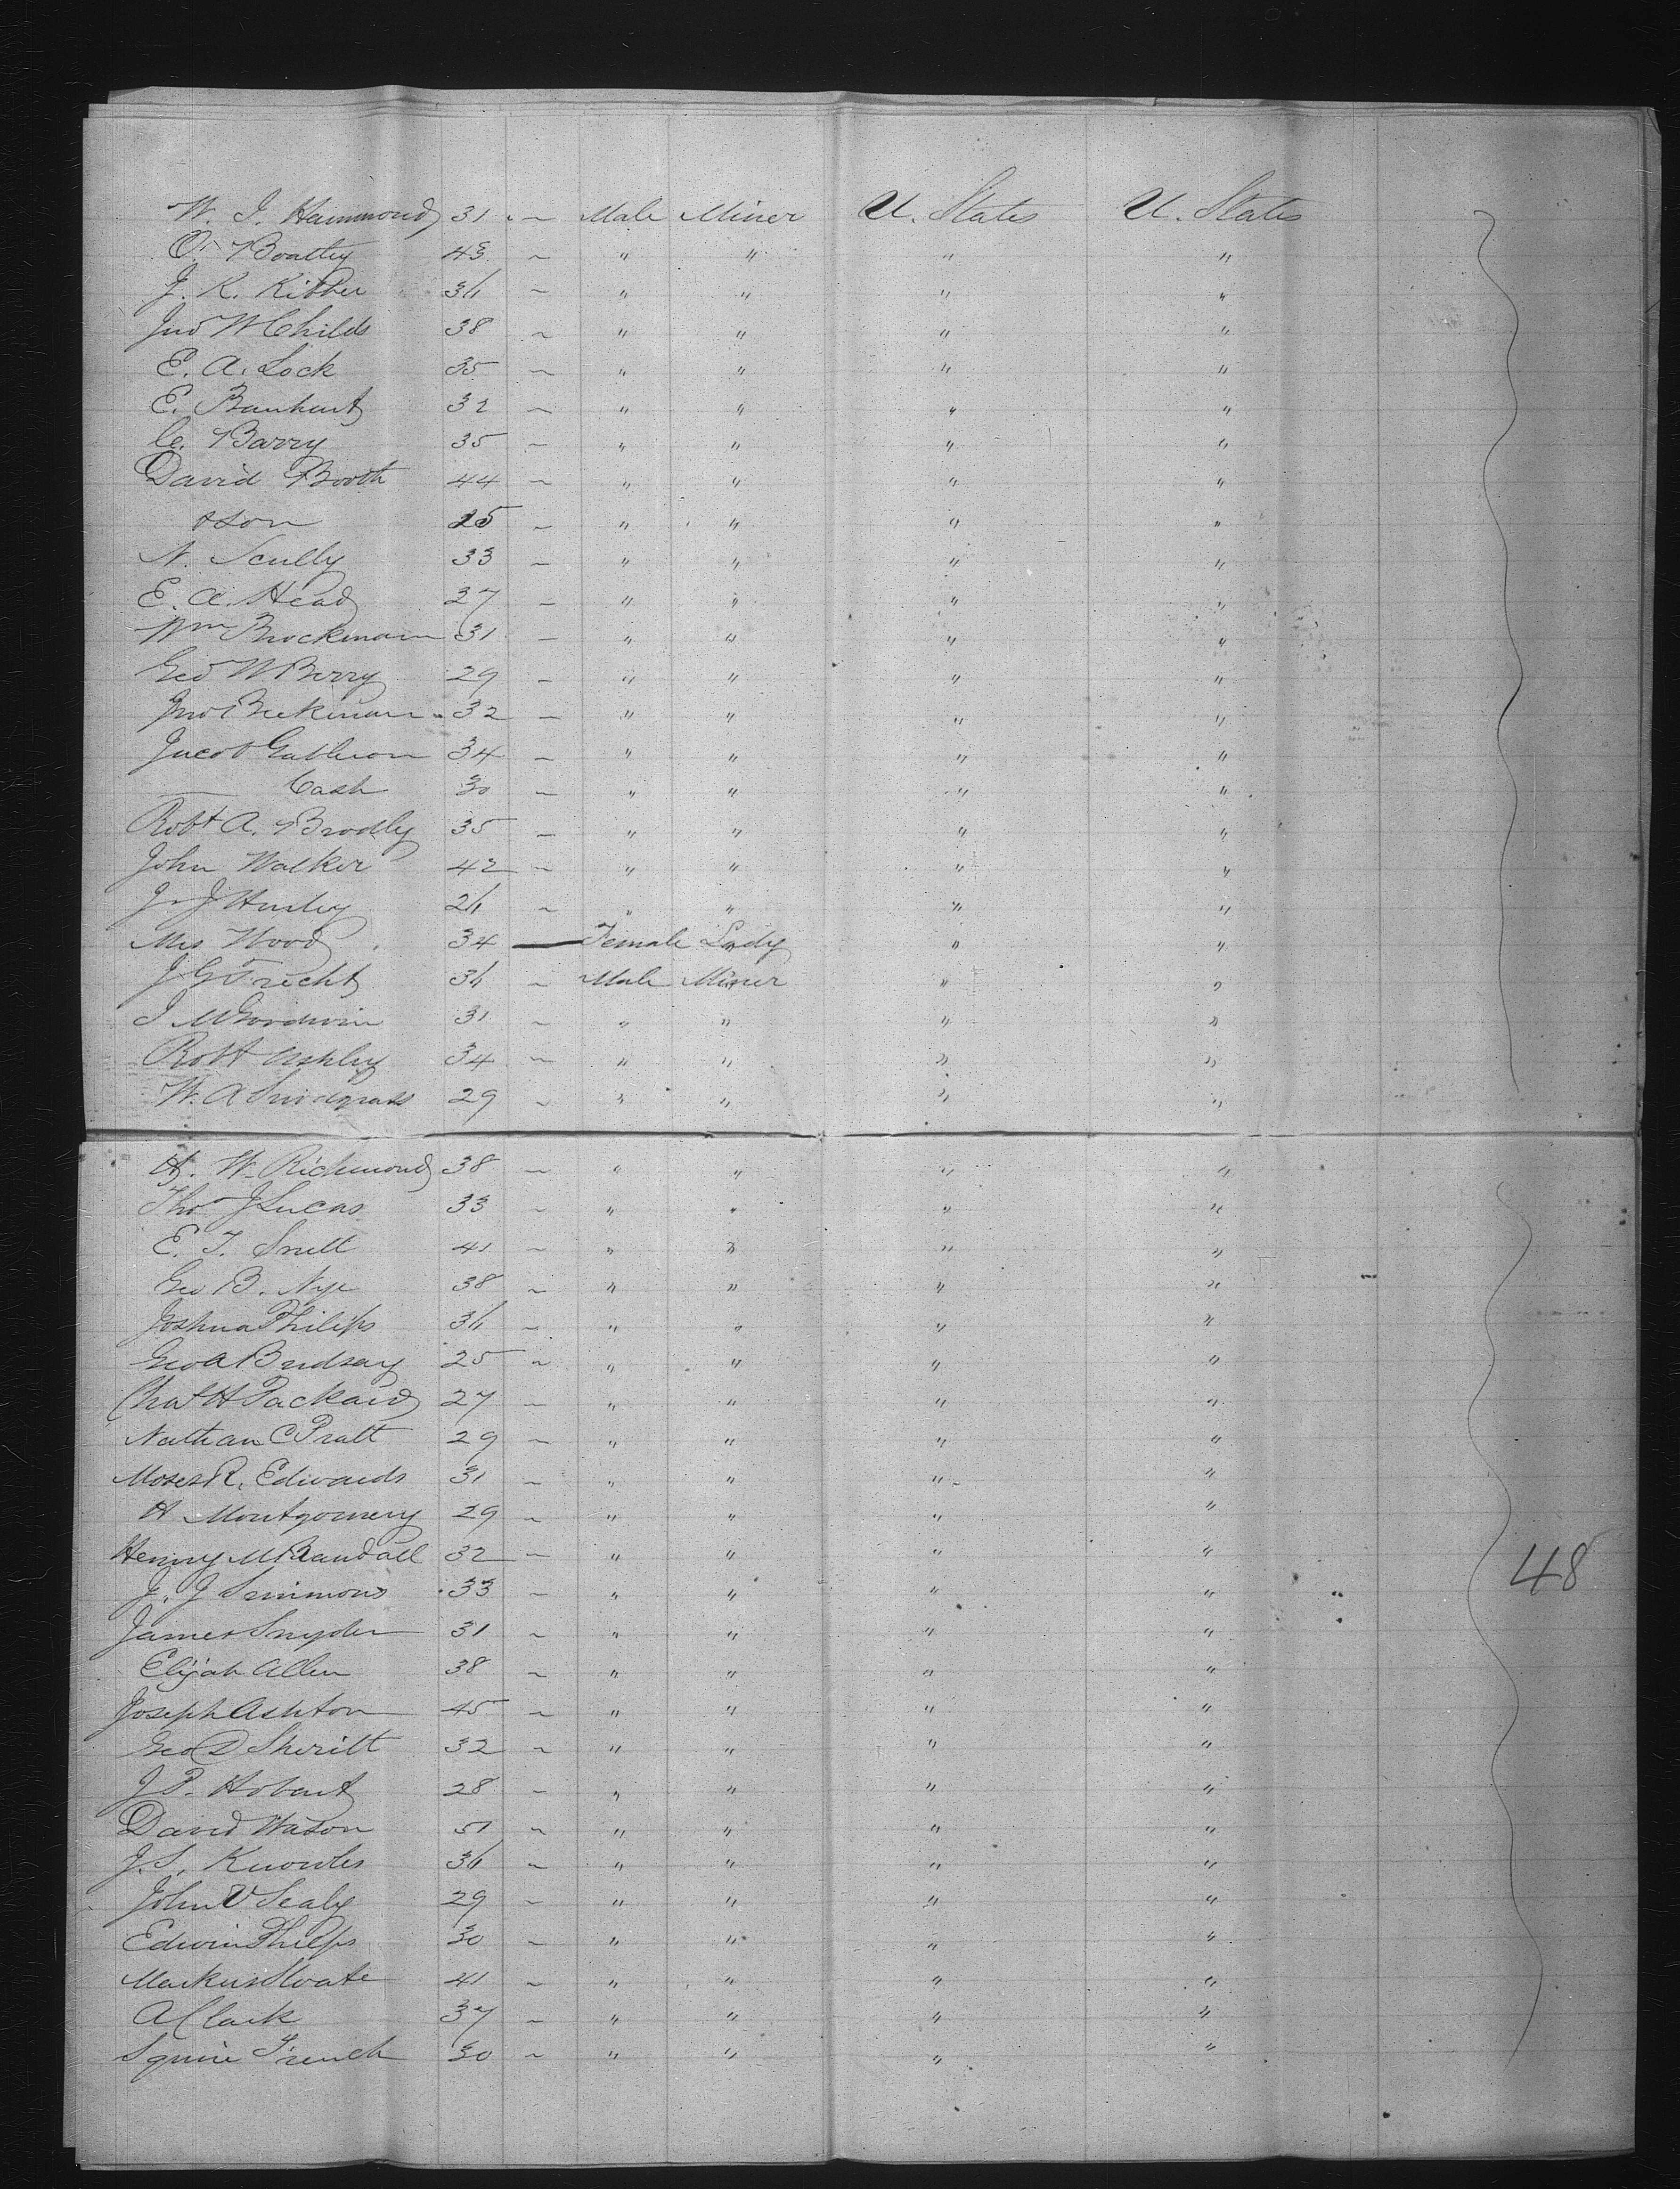 W. J. Hammond 31 — Male Miner U. States U. States
O. Boatley 43 ~ " " " "
J. R. Kibber 36 ~ " " " "
Jno W Childs 38 ~ " " " "
E. A. Lock 35 ~ " " " "
E. Barnhart 32 ~ " " " "
C. Barry 35 ~ " " " "
David Booth 44 ~ " " " "
& Son 25 ~ " " " "
N. Scully 33 ~ " " " "
E. A. Head 27 ~ " " " "
Wm Brockman 31 ~ " " " "
Geo W Berry 29 ~ " " " "
Jno Beekman 32 ~ " " " "
Jacob 34 ~ " " " "
— Cash 30 ~ " " " "
Robt A. Brodly 35 ~ " " " "
John Walker 42 ~ " " " "
J. J Hurley 26 ~ " " " "
Mrs Wood 34 — Female Lady " "
J G Trecht 36 ~ Male Miner " "
J M Goodwin 31 ~ " " " "
Robt Ashley 34 ~ " " " "
W. A Snodgrass 29 ~ " " " "
H. W. Richmond 38 ~ " " " "
Tho J Lucas 33 ~ " " " "
E. T. Snell 41 ~ " " " "
Geo B. Nye 38 ~ " " " "
Joshua Philips 36 ~ " " " "
Geo A Birdsay 25 ~ " " " "
Chas H Packard 27 ~ " " " "
Nathan C Pratt 29 ~ " " " "
Moses R. Edwards 31 ~ " " " "
H Montgomery 29 ~ " " " "
Henry M Randall 32 ~ " " " "
48
J. J Simmons 33 ~ " " " "
James Snyder 31 ~ " " " "
Elijah Allen 38 ~ " " " "
Joseph Ashton 45 ~ " " " "
Geo D Sheritt 32 ~ " " " "
J P. Hobart 28 ~ " " " "
David Watson 51 ~ " " " "
J. S. Knowles 36 ~ " " " "
John V Sealy 29 ~ " " " "
Edwin Phelps 30 ~ " " " "
Markus Sloate 41 ~ " " " "
A Clark 37 ~ " " " "
Squire French 30 ~ " " " "